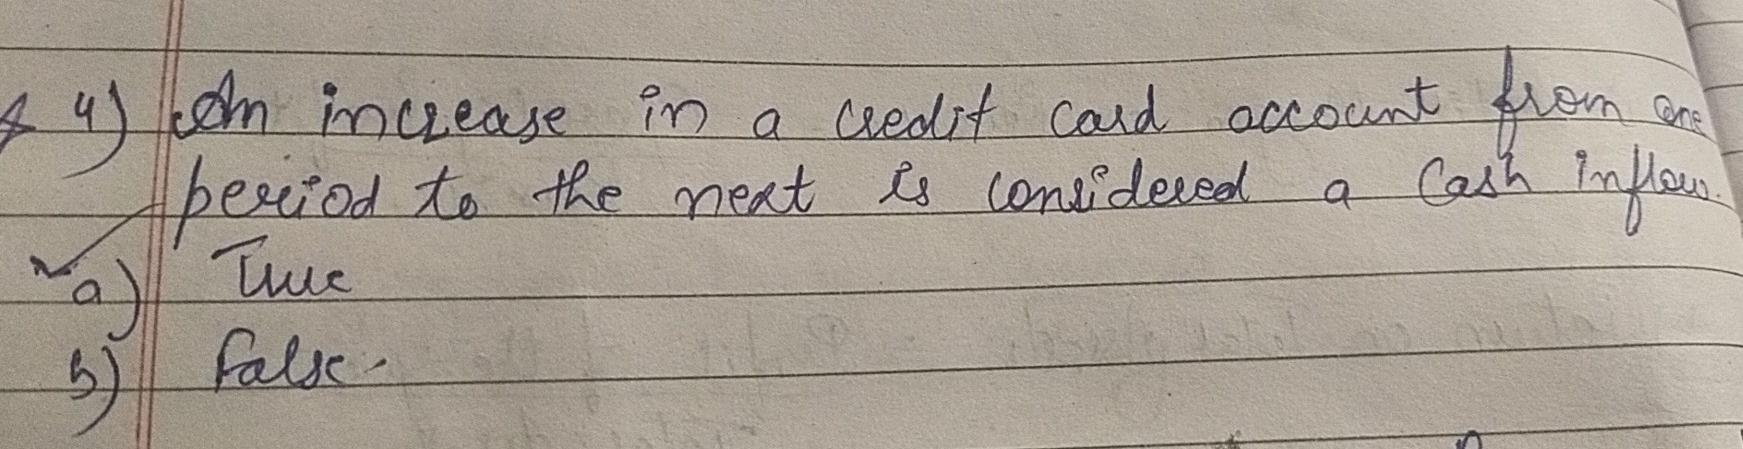 4) An increase in a credit card account from one
period to the next is considered a Cash inflow.
a) True
b) False.